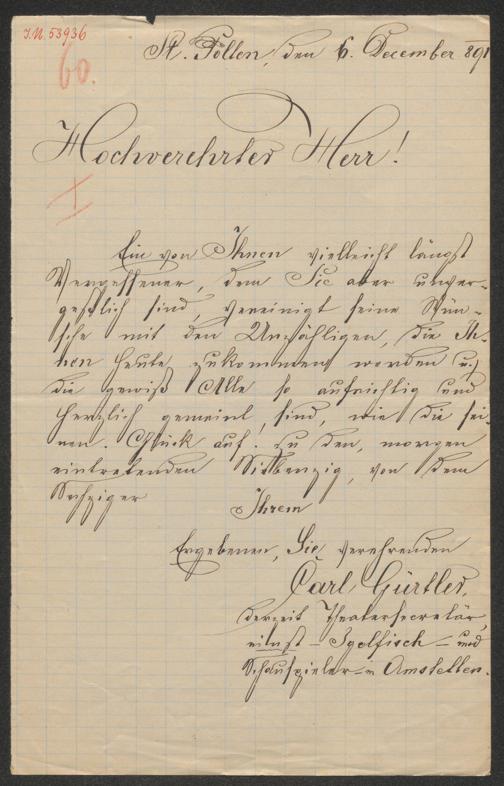 I.N. 53936
60.
St. Pölten, den 6. December 891
Hochverehrter Herr!
Ein von Ihnen vielleicht längst
Vergessener, dem Sie aber unver-
geßlich sind, vereinigt seine Wün-
sche mit den Unzähligen, die Ih-
nen heute zukommen werden u.
die gewiß Alle so aufrichtig und
herzlich gemeint sind, wie die sei-
nen. Glück auf! zu den, morgen
eintretenden Siebenzig, von dem
Sechziger
Ihrem
Ergebenen, Sie verehrenden
Carl Gürtler,
derzeit Theatersecretär,
einst – Igelfisch – und
Schauspieler in Amstetten.